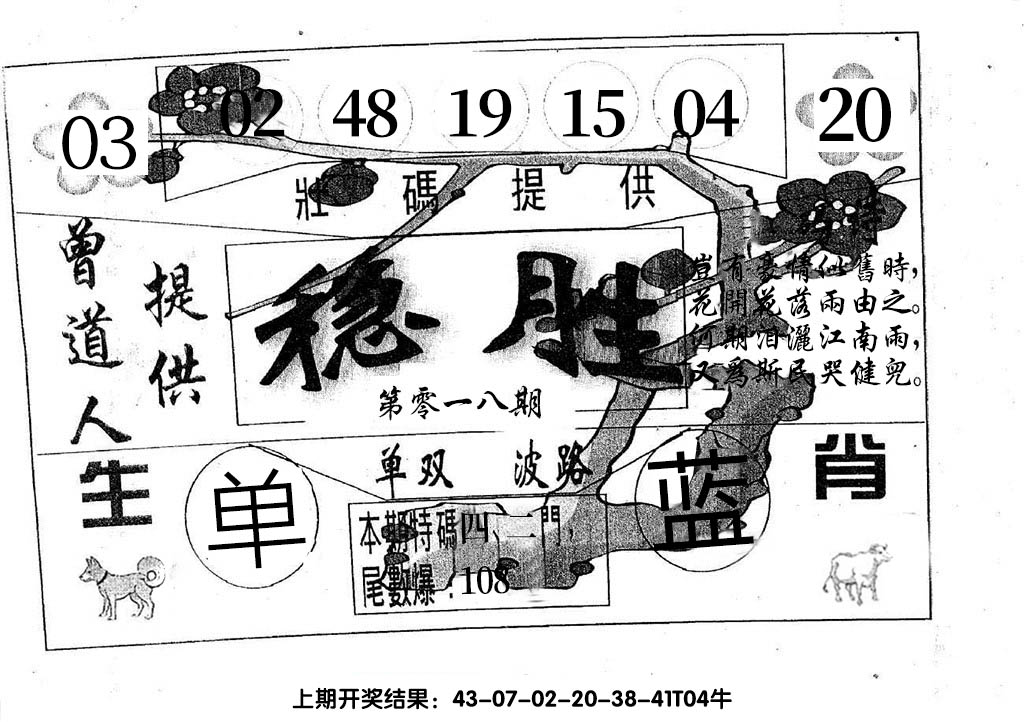 03 02 48 19 15 04 20
壯碼提供
曾道人
提供
穩胜
第零一八期
豈有豪情似舊時，
花開花落兩由之。
何期泪灑江南雨，
又為斯民哭健兒。
生肖
单双 波路
单 蓝
本期特碼四、二門，
尾數爆：108
上期开奖结果：43-07-02-20-38-41T04牛